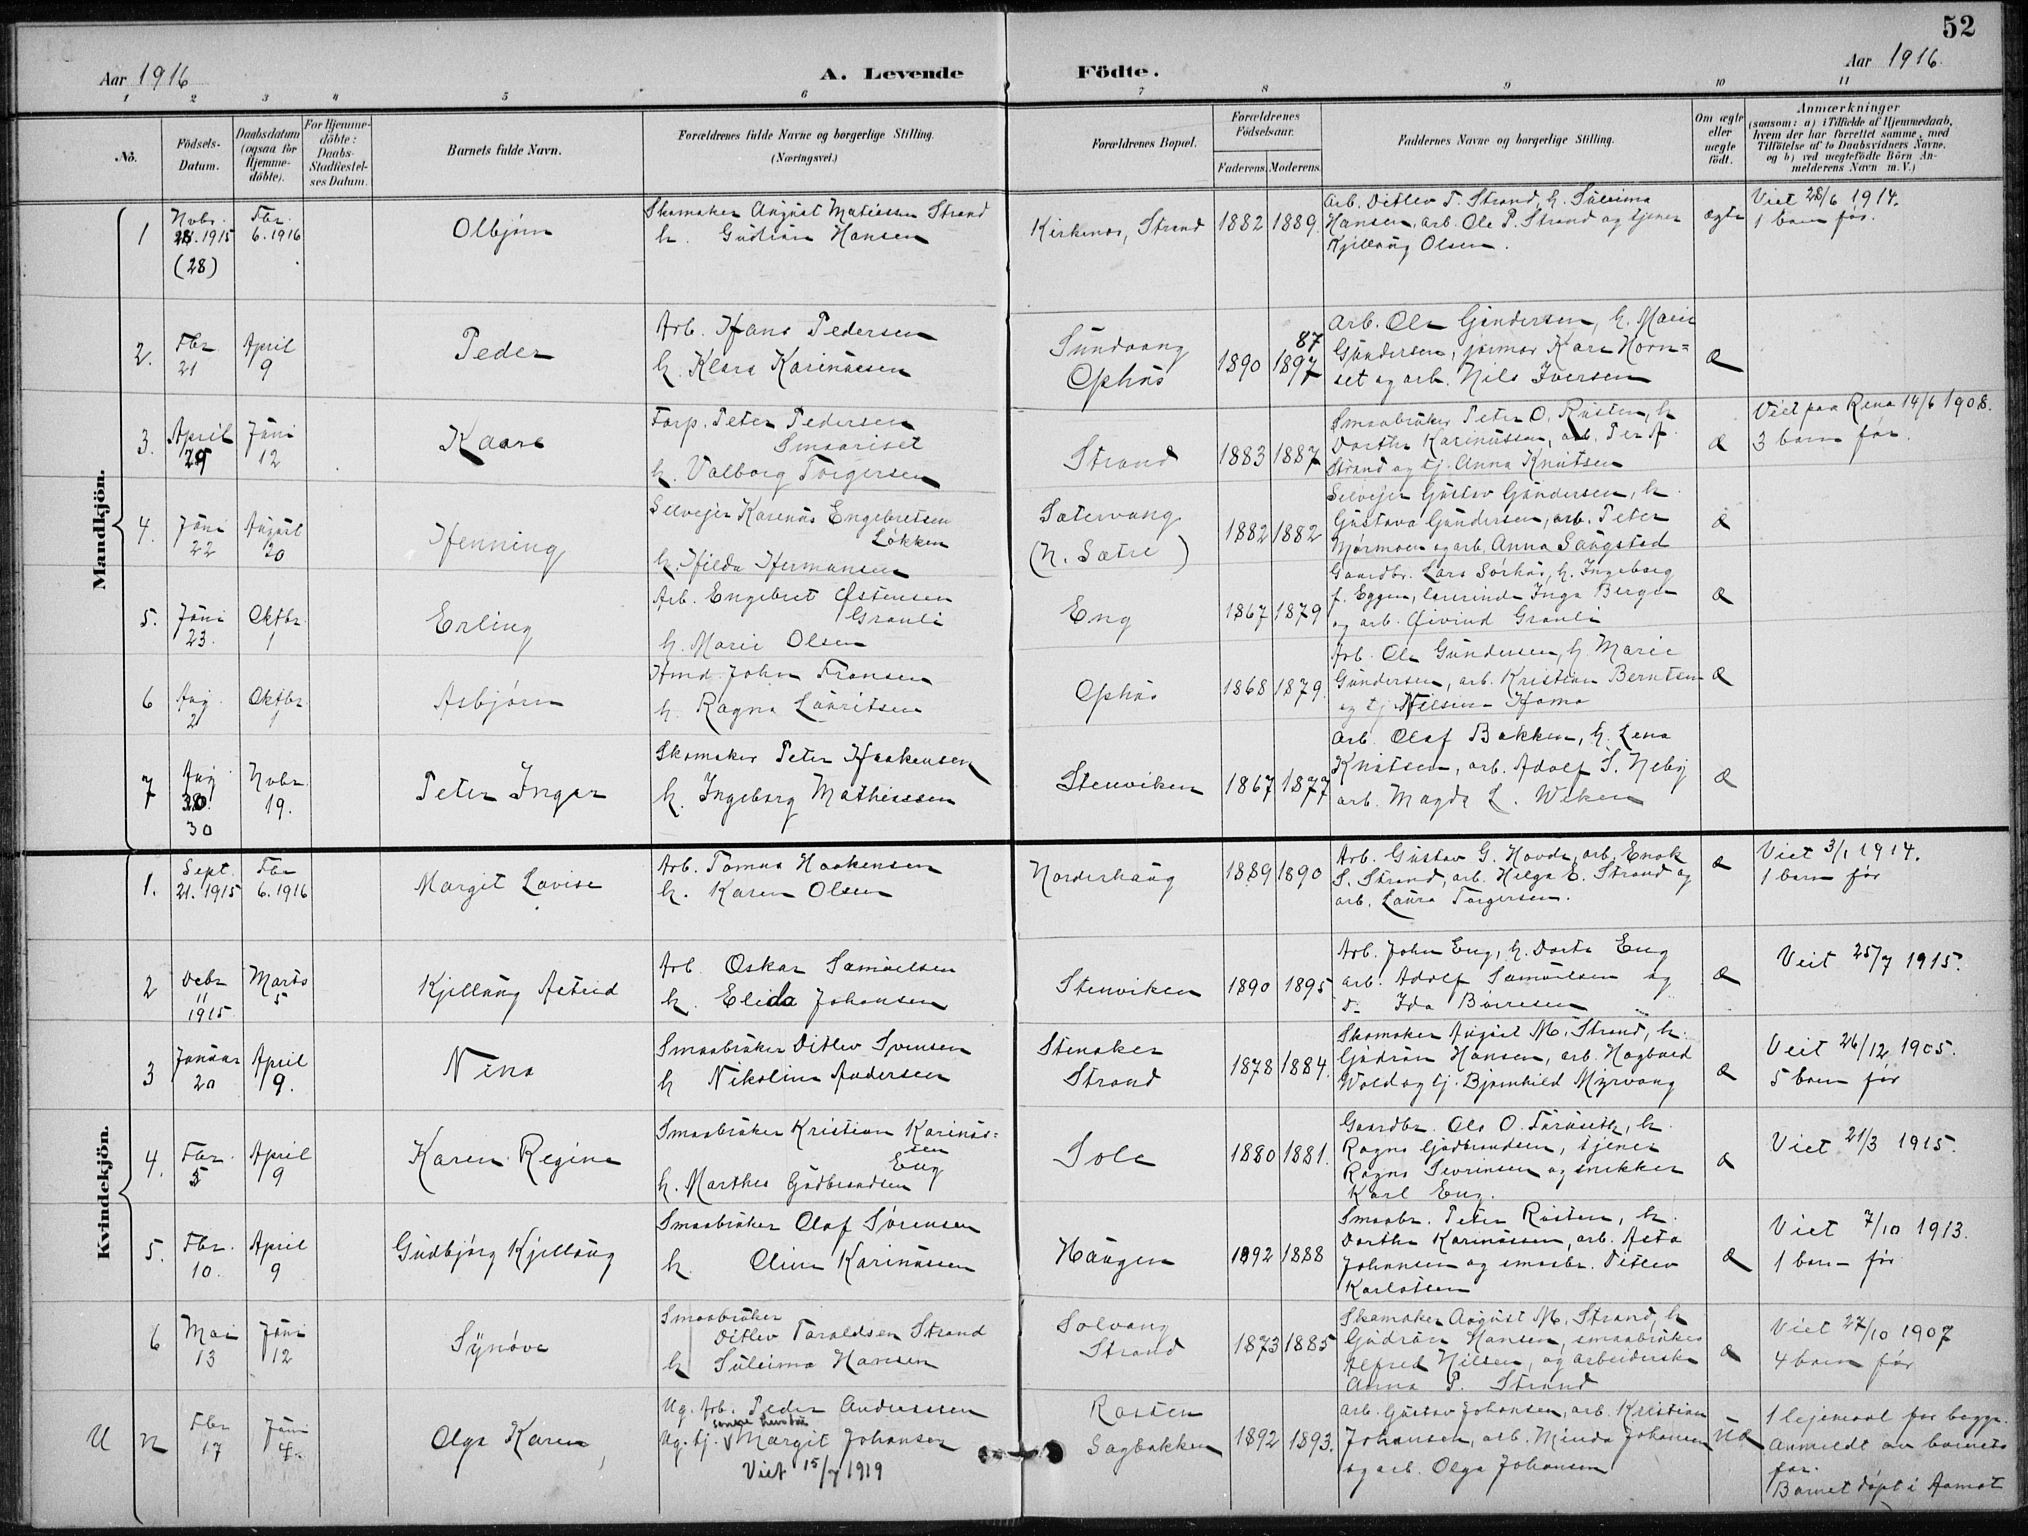 52
Aar 1916
A. Levende Födte.
Aar 1916
1 2 3 4 5 6 7 8 9 10 11
No.
Födsels-
Datum.
Daabsdatum
(ogsaa for
Hjemme-
döbte).
For Hjemme-
döbte:
Daabs-
Stadfæstel-
ses Datum.
Barnets fulde Navn.
Forældrenes fulde Navne og borgerlige Stilling.
(Næringsvei.)
Forældrenes Bopæl.
Forældrenes
Födselsaar.
Faderens. Moderens.
Faddernes Navne og borgerlige Stilling.
Om ægte
eller
uægte
födt.
Anmærkninger
(saasom: a) i Tilfælde af Hjemmedaab,
hvem der har forrettet samme, med
Tilföielse af to Daabsvidners Navne,
og b) ved uægtefödte Börn An-
melderens Navn m. V.)
Mandkjön.
1
Novbr.
28. 1915
(28)
Fbr.
6. 1916
Olbjørn
Skomaker August Matiessen Strand
h. Gudrun Hansen
Kirkenos, Strand
1882 1889
Arb. Ditlev T. Strand, h. Suleima
Hansen, arb. Ole P. Strand og tjener
Kjellaug Olsen.
ægte
Viet 28/6 1914.
1 barn før.
2.
Fbr
21
April
9
Peder
Arb. Hans Pedersen
h. Klara Karinusen
Sundvang
Ophus
1890 1897
87
Arb. Ole Gundersen, h. Marie
Gundersen, jormor Kari Horn=
set og arb. Nils Iversen
Æ
3.
April
29
Juni
12
Kaare
Forp. Peter Pedersen
Smaariset
h. Valborg Torgersen
Strand
1883 1887
Smaabruker Peter O. Rusten, h.
Dorthe Karinussen, arb. Per A.
Strand og tj. Anna Knutsen
Æ
Viet paa Rena 14/6 1908.
3 barn før.
4.
Juni
22
August
20
Henning
Selvejer Karenus Engebretsen
Løkken
h. Hilda Hermansen
Sætervang
(N. Sætre)
1882 1882
Selvejer Gustav Gundersen, h.
Gustava Gundersen, arb. Peter
Mørmoen og arb. Anna Saugstad
Æ
5.
Juni
23.
Oktbr.
1
Erling
Arb. Engebret Østensen
Granli
h. Marie Olsen
Eng
1867 1879
Gaardbr. Lars Sørhus, h. Ingeborg
f. Eggen, lærerinde Inga Berger
og arb. Øivind Granli
Æ
6
Aug.
2
Oktbr.
1
Asbjørn
Hmd. John Fransen
h. Ragna Lauritsen
Ophus
1868 1879.
Arb. Ole Gundersen, h. Marie
Gundersen, arb. Kristian Berntsen
og tj. Nilsine Hamo
Æ
7
Aug.
30
30
Novbr.
19.
Peter Ingar
Skomaker Peter Haakensen
h. Ingeborg Mathiessen
Stenviken
1867 1877
Arb. Olaf Bakken, h. Lena
Knutsen, arb. Adolf S. Neby
arb. Magda L. Weken
Æ
Kvindekjön.
1.
Sept.
21. 1915
Fbr
6. 1916
Margit Lovise
Arb. Tomas Haakensen
h. Karen Olsen
Norderhaug
1889 1890
Arb. Gustav G. Hovde, arb. Enok
S. Strand, arb. Helga E. Strand og
arb. Laura Torgersen.
Æ
Viet 3/1 1914.
1 barn før
2
Debr
11
1915
Marts
5
Kjellaug Astrid
Arb. Oskar Samuelsen
h. Elida Johansen
Stenviken
1890 1895
Arb. John Eng, h. Dorte Eng
arb. Adolf Samuelsen og
Ida Børresen
Æ
Viet 25/7 1915.
3
Januar
20
April
9.
Nina
Smaabruker Ditlev Svensen
h Nikoline Andersen
Stenaker
Strand
1878 1884.
Skomaker August M. Strand, h.
Gudrun Hansen, arb. Hagbard
Wold og tj. Bjørnhild Myrvang
Æ
Viet 26/12 1905.
5 barn før
4.
Fbr.
5
April
9
Karen Regine
Smaabruker Kristian Karinus=
sen
Eng
h. Marthea Gudbrandsen
Sole
1880 1881.
Gaardbr. Ole O. Furuseth, h.
Ragna Gudbrandsen, tjener
Ragna Sevrinsen og snekker
Karl Eng.
Æ
Viet 21/3 1915.
5.
Fbr.
10.
April
9
Gudbjørg Kjellaug
Smaabruker Olaf Sørensen
h. Oline Karinussen
Haugen
1892 1888
Smaabr. Peter Rusten, h.
Dorthe Karinussen, arb. Asta
Johansen og smaabr. Ditlev
Karlstsen
Æ
Viet 7/10 1913.
1 barn før
6
Mai
13
Juni
12
Synøve
Smaabruker
Ditlev Taraldsen Strand
h Suleima Hansen
Solvang
Strand
1873 1885
Skomaker August M. Strand, h
Gudrun Hansen, smaabruker
Alfred Nilsen, og arbeiderske
Anna P. Strand
Æ
Viet 27/10 1907
4 barn før
U n
Fbr
17
Juni
4.
Olga Karen
Ug. Arb. Peder Andersen
Ug. tj. Margit Johansen
Viet 15/7 1919
Rasten
Sagbakken
1892 1893.
Arb. Gustav Johansen, arb. Kristian
Johansen, arb. Minda Johansen
og arb. Olga Johansen
UÆ
1 lejemaal for begge.
Anmeldt av barnets
far.
Barnet døpt i Aamot